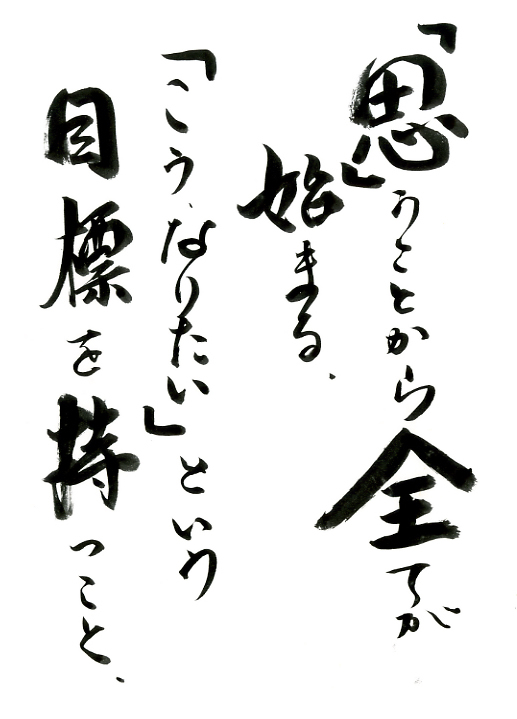 「思」うことから全てが
始まる、
「こう、なりたい」という
目標を持つこと、